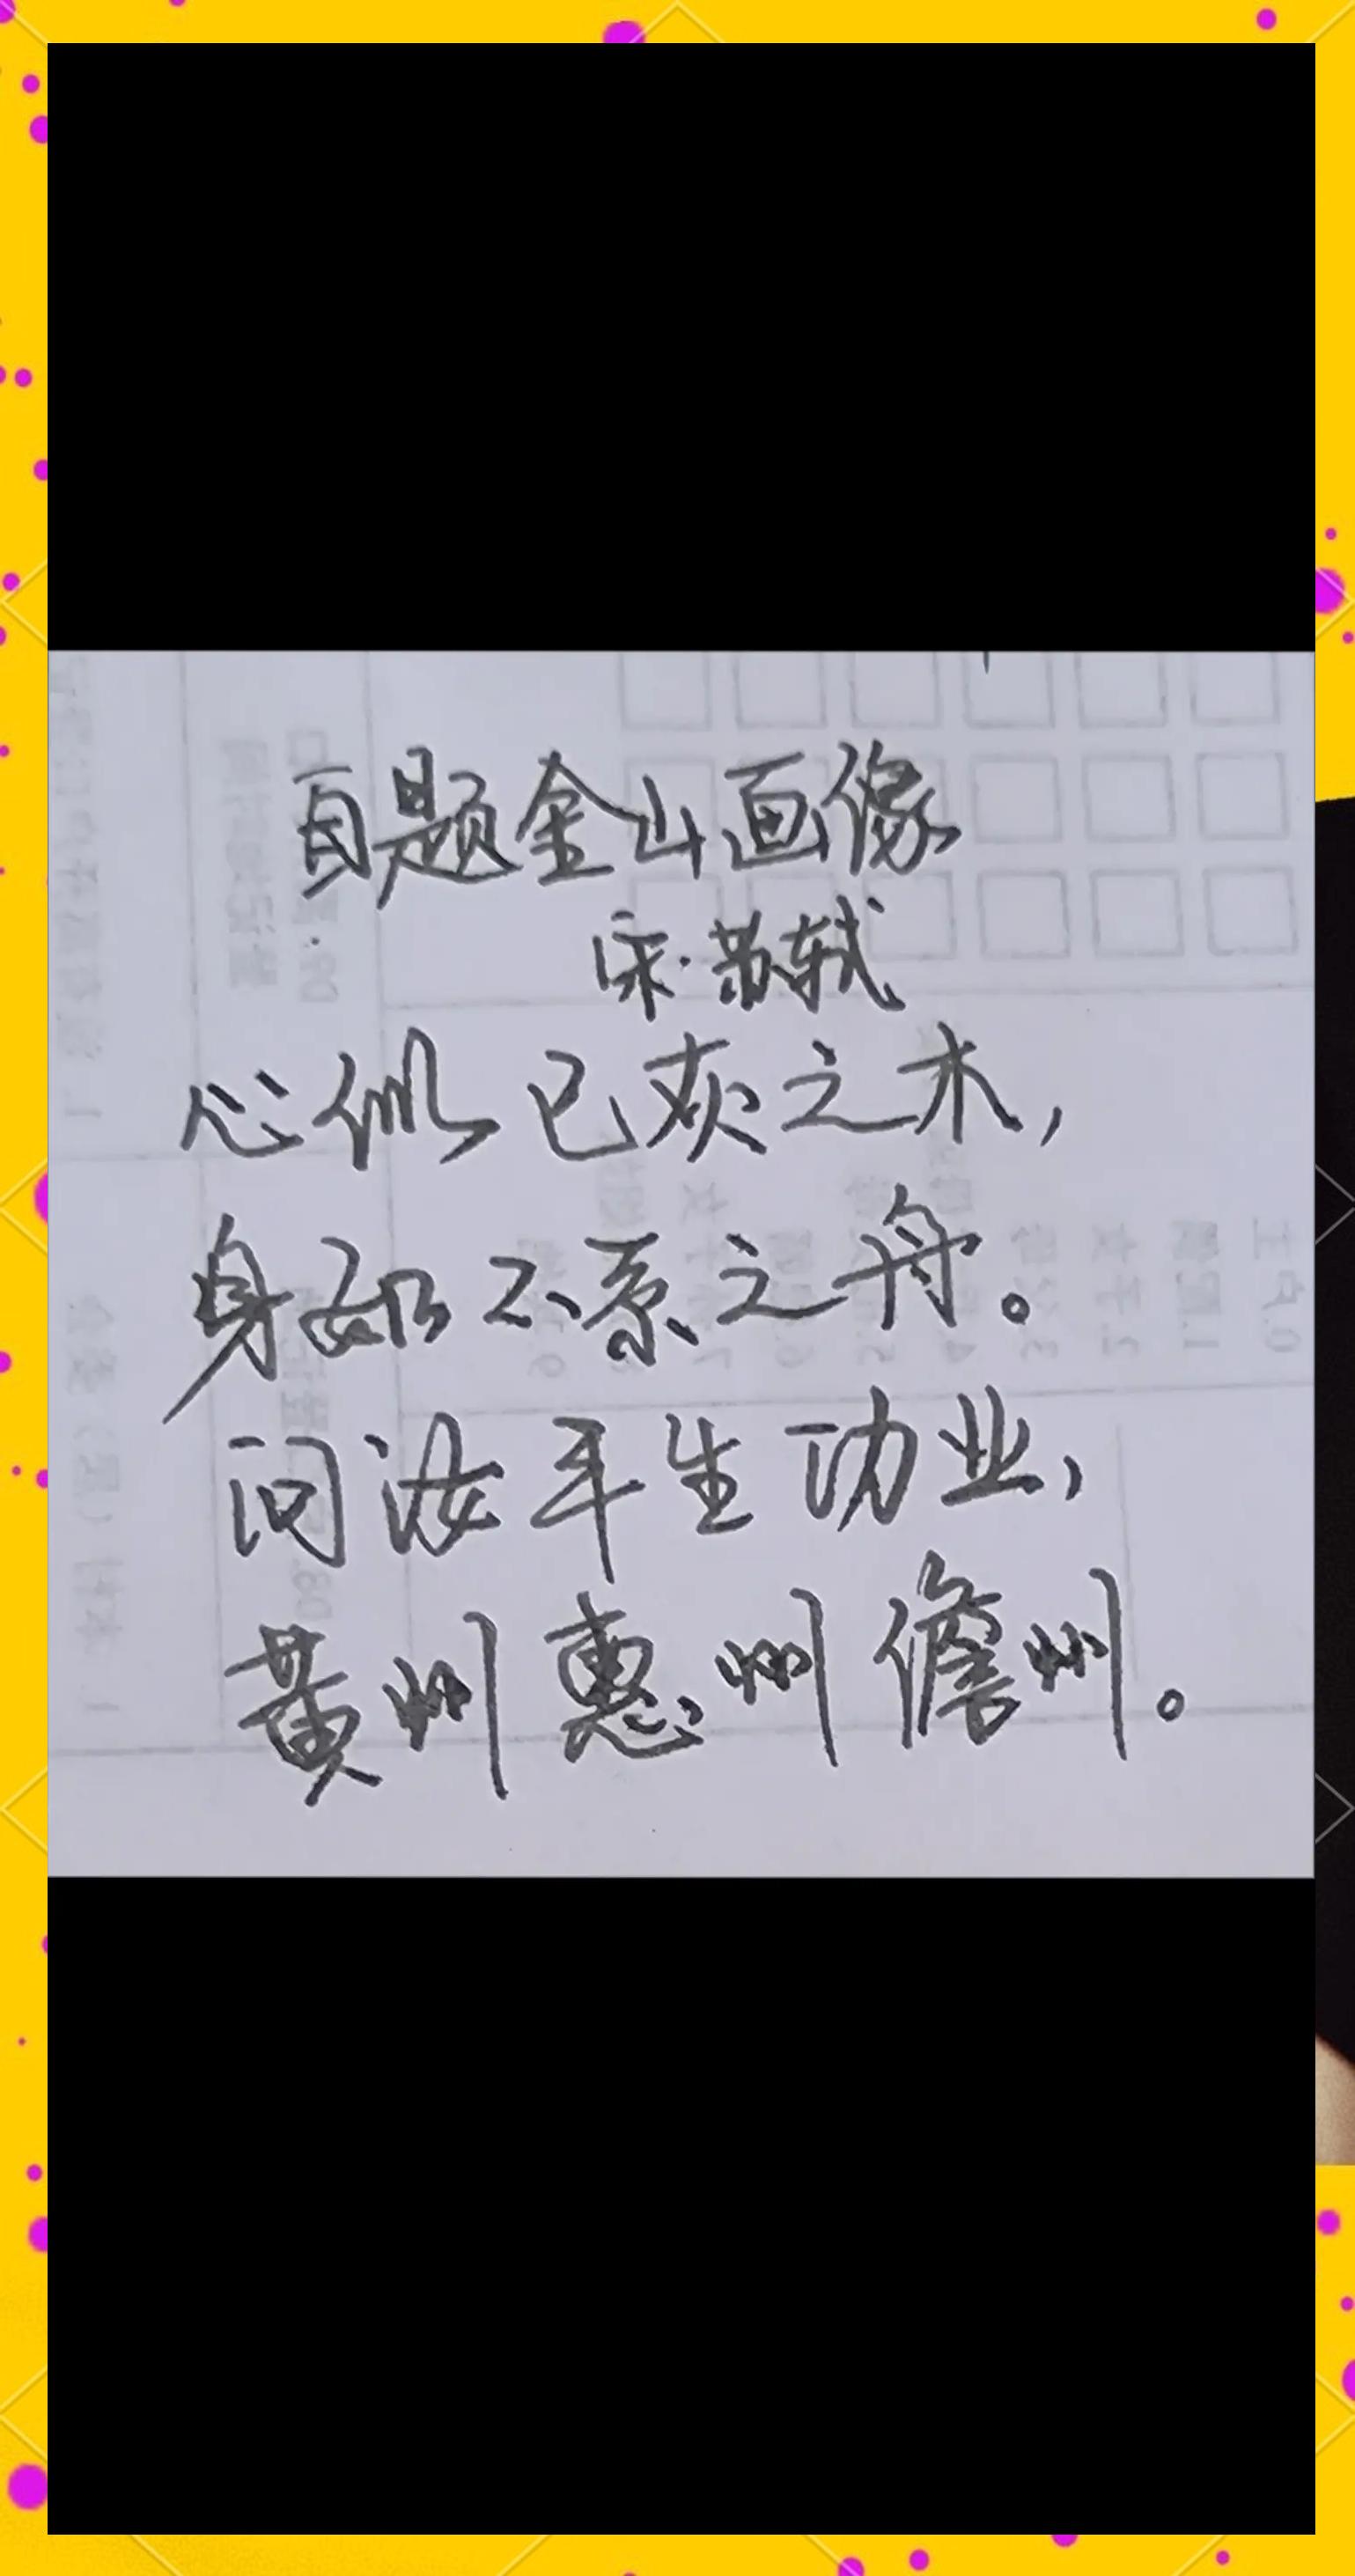 自题金山画像
宋·苏轼
心似已灰之木，
身如不系之舟。
问汝平生功业，
黄州惠州儋州。